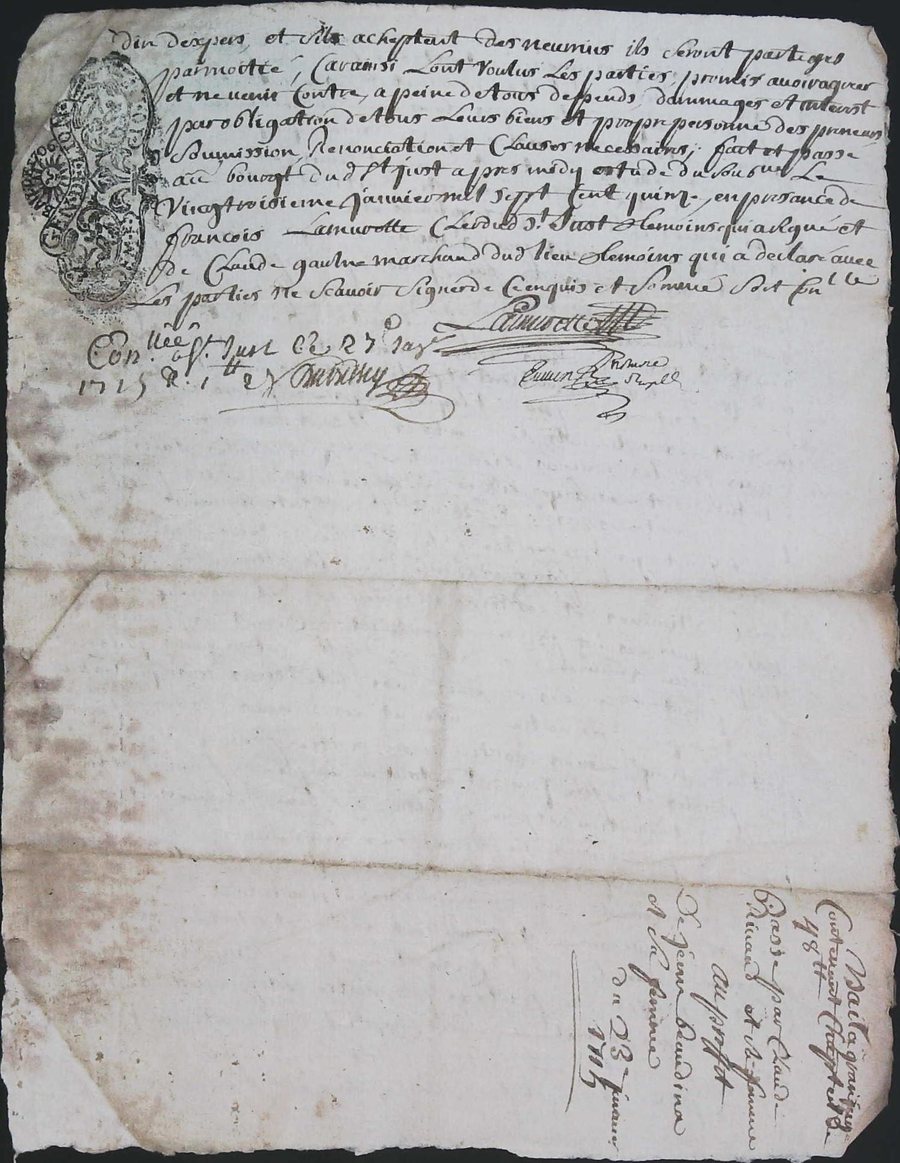 dire dexpers, et silz acheptent des neurins ils seront partages
par moitie, Car ainsi Lont voulus Les parties, promis avoir agreer
et ne venir Contre, a peine de tous depends dommages et interest
par obligation de tous Leurs biens et propre personne des preneurs
Soumission, Renonciation et Clauses necessaires, fait et passe
au bourgt dud St Just apres midy estude du sousne Le
Vingt troisieme Janvier mil sept Cent quinze, en presance de
françois Lamurette Clerc dud St Just temoins qui a signé et
de Claude gaulne marchand dud lieu temoins qui a declaré avec
Les parties Ne Scavoir Signer de Ce enquis et Sommé Soit Con lle
Lamurette
Con llée a St Just Le 27e Janv
1715 R. 1 tt
GENERALITE
Bail a grangeage
Contenant Cheptel de
48 tt
Passe par Claude
et sa femme
au proffit
De Jean beaudina
et sa femme
du 23e Janvier
1715